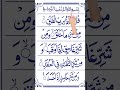 قُلْ أَعُوذُ بِرَبِّ الْفَلَقِ
مِنْ شَرِّ مَا خَلَقَ وَمِنْ
شَرِّ غَاسِقٍ إِذَا وَقَبَ وَ
مِنْ شَرِّ النَّفّٰثٰتِ فِي الْعُقَدِ
وَمِنْ شَرِّ حَاسِدٍ إِذَا حَسَدَ